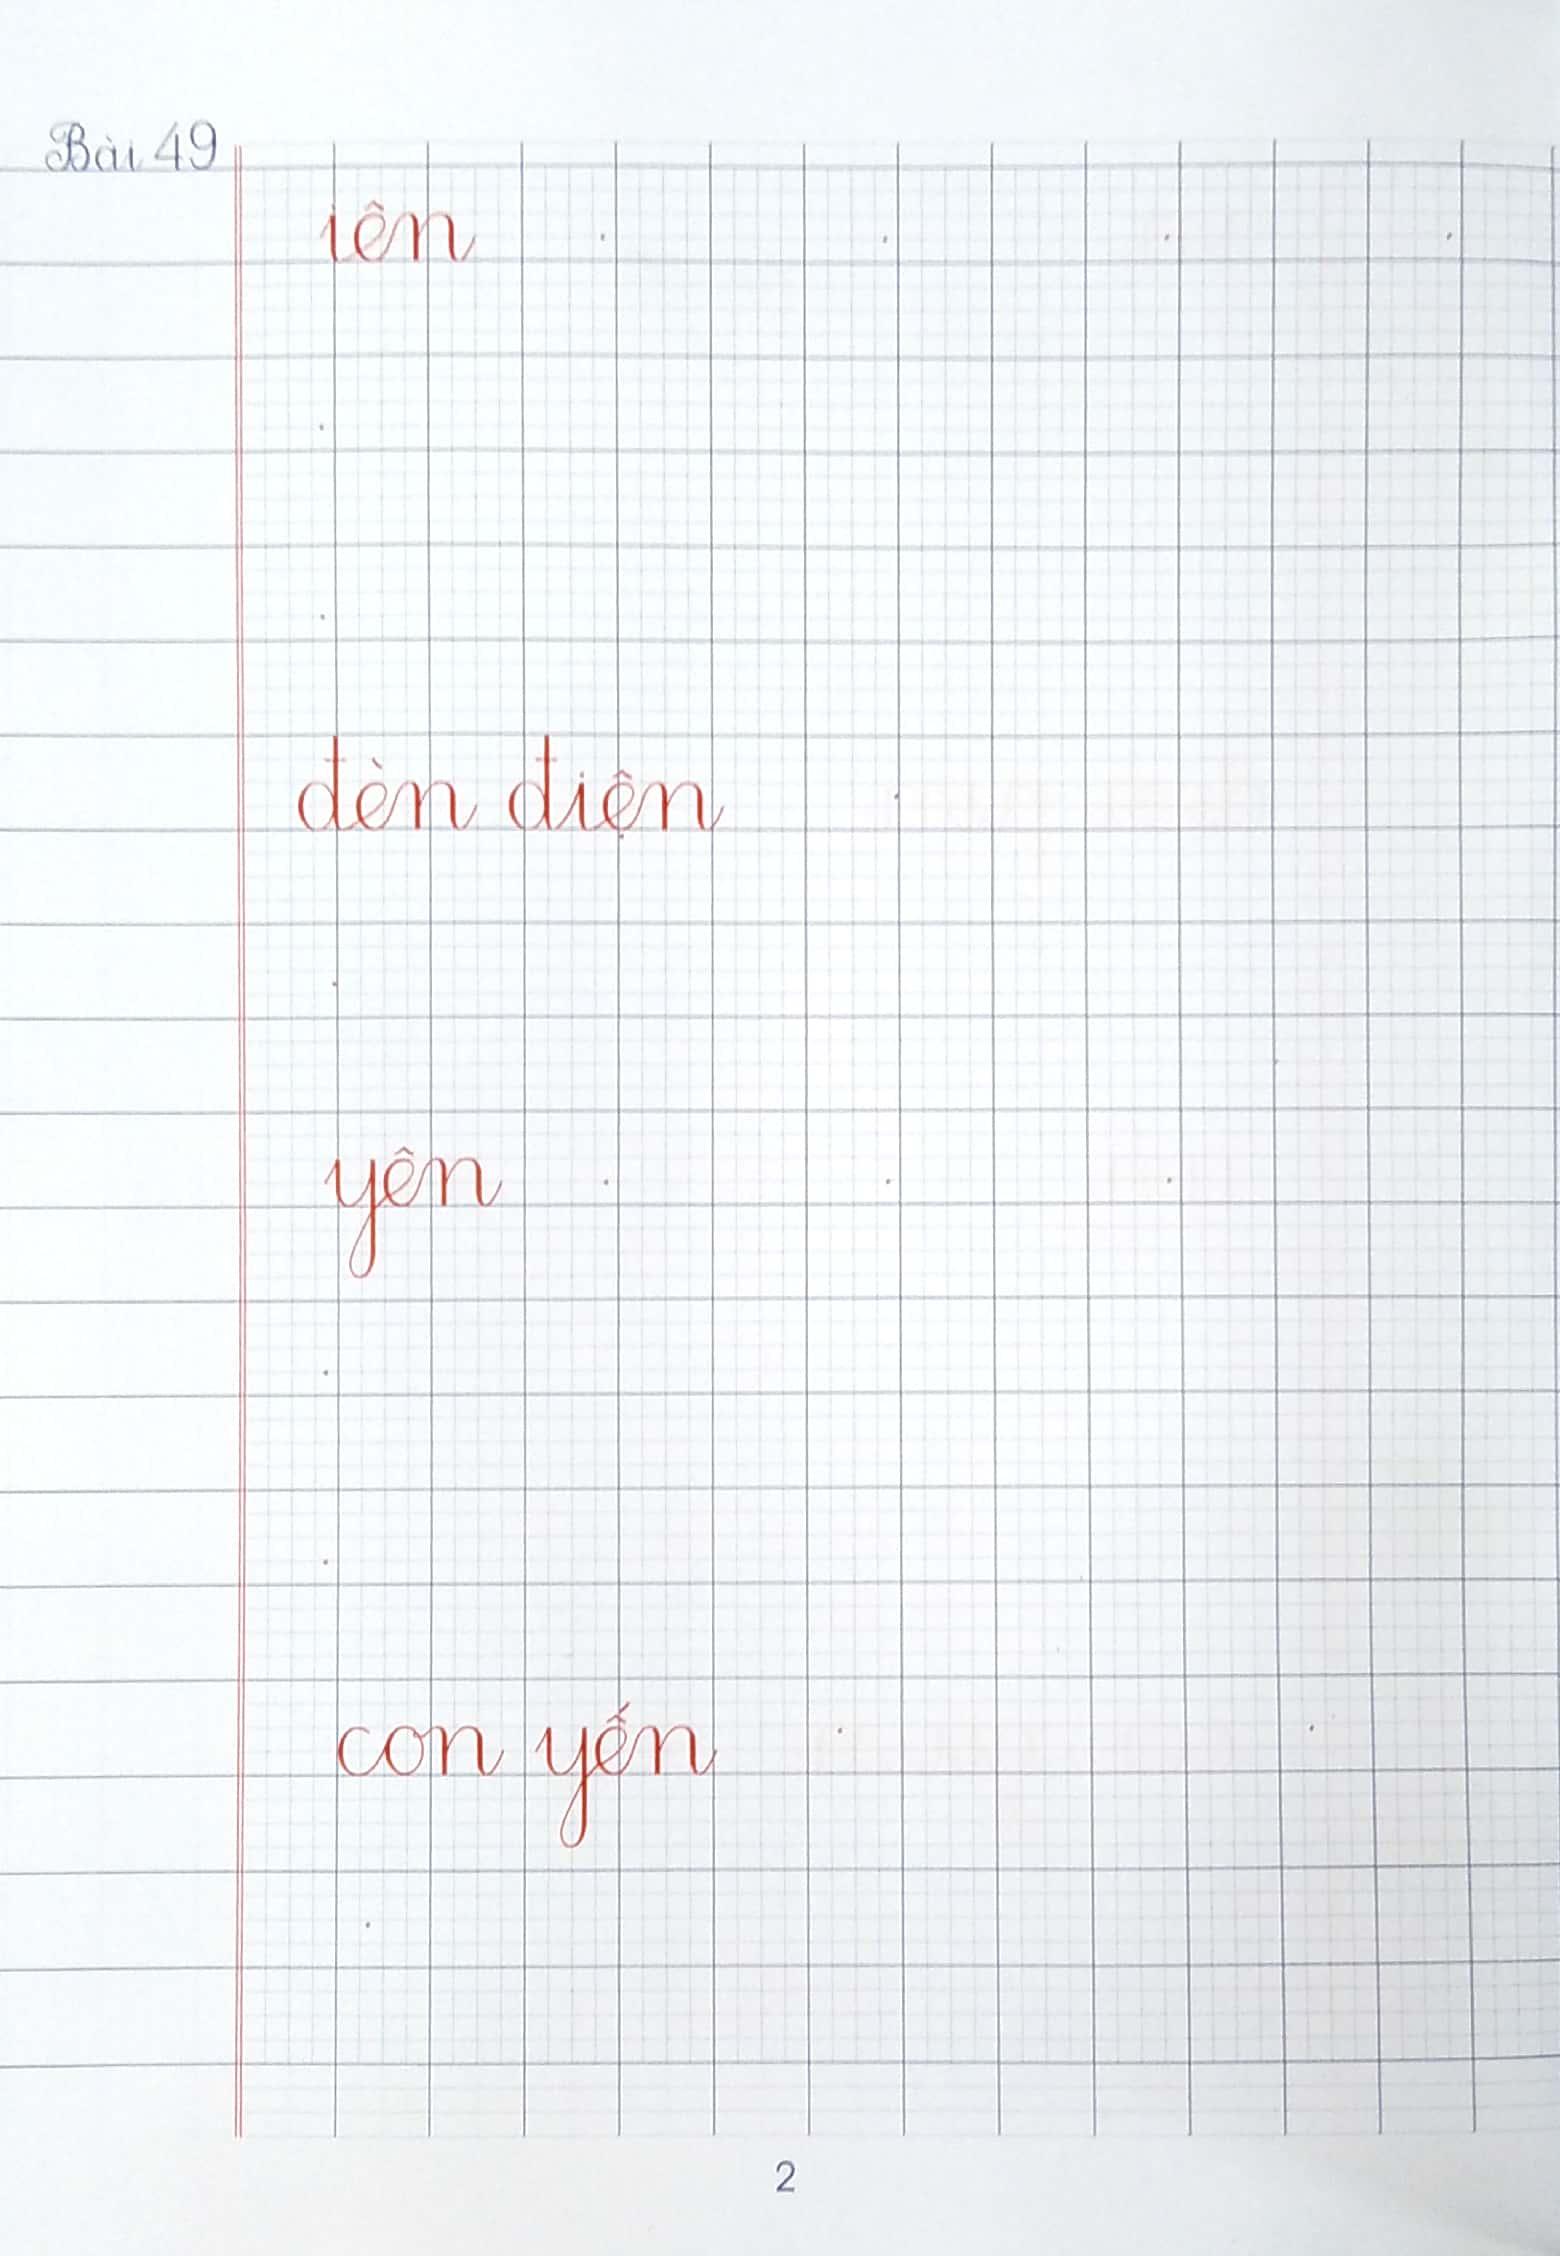 Bài 49
iên
đèn điện
yên
con yến
2